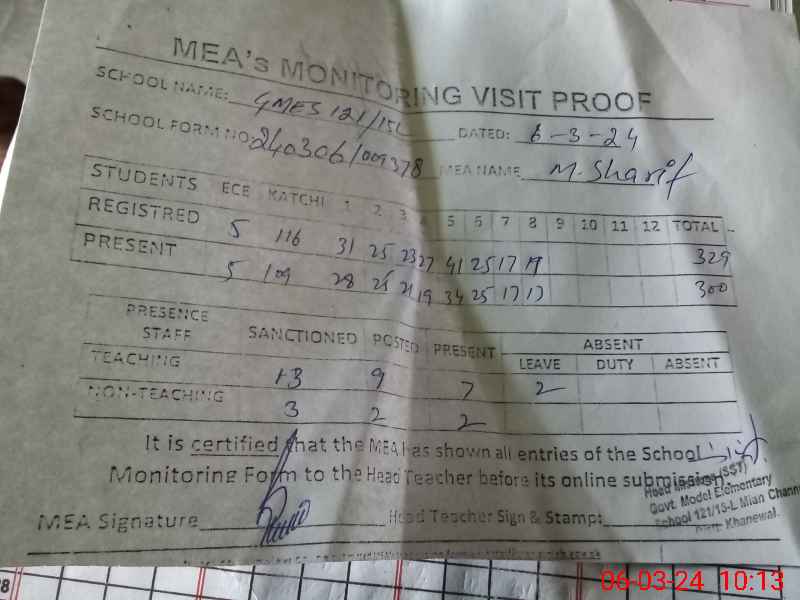 MEA's MONITORING VISIT PROOF
SCHOOL NAME: GMES 121/15L
SCHOOL FORM NO: 240306/009378 DATED: 6-3-24
MEA NAME M. Sharif
STUDENTS ECE KATCHI 1 2 3 4 5 6 7 8 9 10 11 12 TOTAL
REGISTRED 5 116 31 25 23 27 41 25 17 19 329
PRESENT 5 109 28 25 21 19 34 25 17 17 300
PRESENCE STAFF SANCTIONED POSTED PRESENT ABSENT
LEAVE DUTY ABSENT
TEACHING 13 9 7 2
NON-TEACHING 3 2 2
It is certified that the MEA has shown all entries of the School
Monitoring Form to the Head Teacher before its online submission.
MEA Signature Head Teacher Sign & Stamp:
(SST)
Govt. Model Elementary
School 121/15-L Mian Chann
Khanewal.
06-03-24 10:13